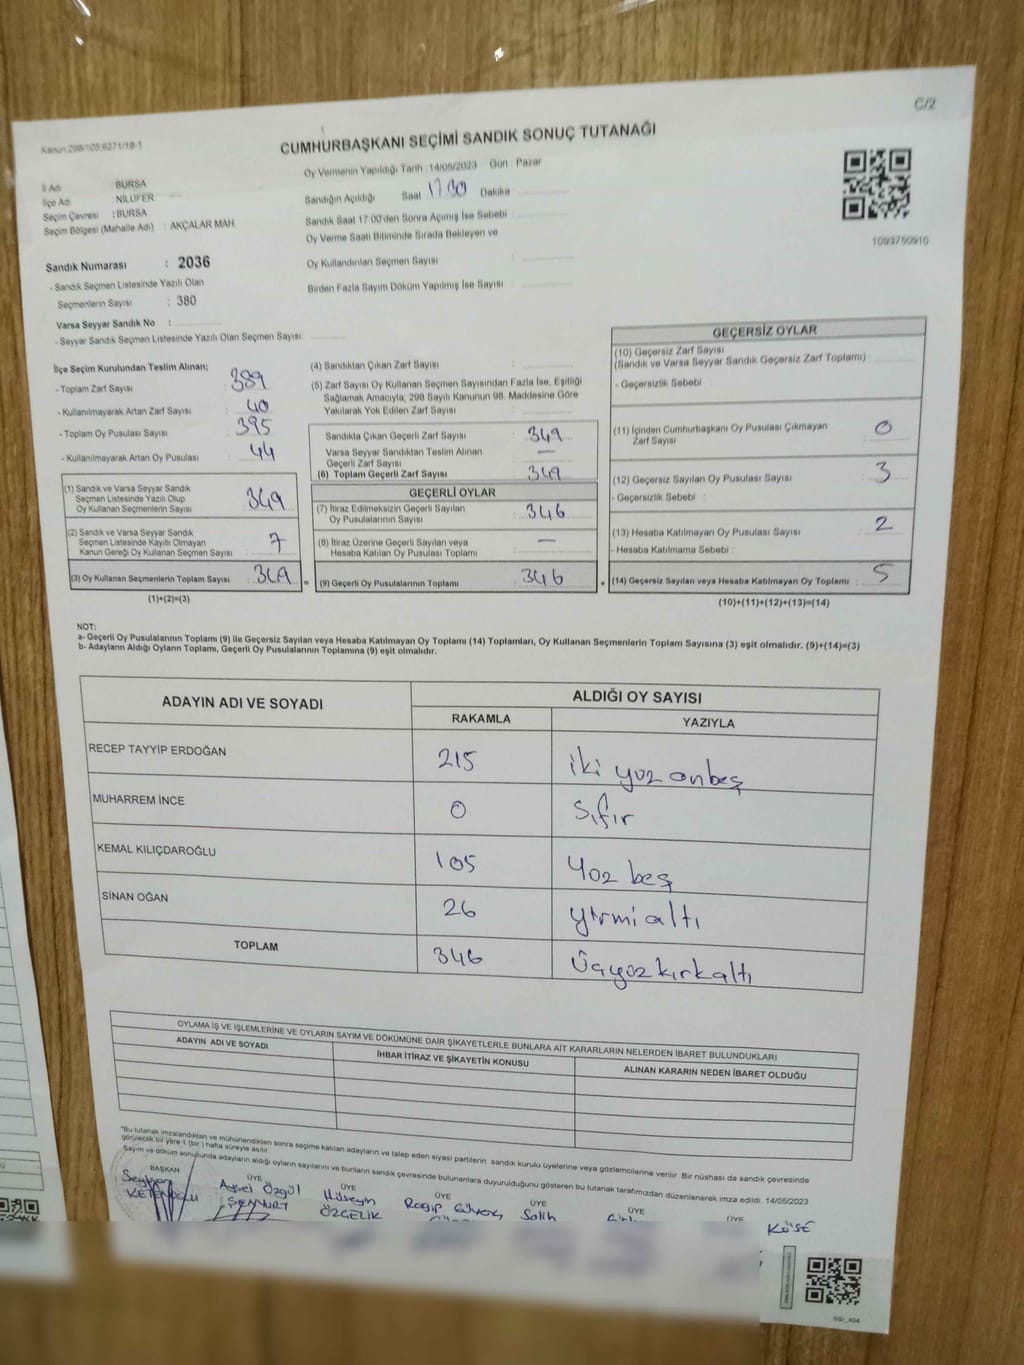 C/2
Kanun:298/105;6271/18-1
CUMHURBAŞKANI SEÇİMİ SANDIK SONUÇ TUTANAĞI
İl Adı : BURSA
İlçe Adı : NİLÜFER
Seçim Çevresi : BURSA
Seçim Bölgesi (Mahalle Adı) : AKÇALAR MAH
Oy Vermenin Yapıldığı Tarih :14/05/2023 Gün : Pazar
Sandığın Açıldığı Saat 17.00 Dakika
Sandık Saat 17:00'den Sonra Açımış İse Sebebi :
Oy Verme Saati Bitiminde Sırada Bekleyen ve
Oy Kullandırılan Seçmen Sayısı :
Birden Fazla Sayım Döküm Yapılmış İse Sayısı :
1093750910
Sandık Numarası : 2036
- Sandık Seçmen Listesinde Yazılı Olan
Seçmenlerin Sayısı : 380
Varsa Seyyar Sandık No :
- Seyyar Sandık Seçmen Listesinde Yazılı Olan Seçmen Sayısı:
İlçe Seçim Kurulundan Teslim Alınan;
- Toplam Zarf Sayısı : 389
- Kullanılmayarak Artan Zarf Sayısı : 40
- Toplam Oy Pusulası Sayısı : 395
- Kullanılmayarak Artan Oy Pusulası : 44
(1) Sandık ve Varsa Seyyar Sandık
Seçmen Listesinde Yazılı Olup
Oy Kullanan Seçmenlerin Sayısı : 349
(2) Sandık ve Varsa Seyyar Sandık
Seçmen Listesinde Kayıtlı Olmayan
Kanun Gereği Oy Kullanan Seçmen Sayısı : 7
(3) Oy Kullanan Seçmenlerin Toplam Sayısı : 349
(1)+(2)=(3)
(4) Sandıktan Çıkan Zarf Sayısı :
(5) Zarf Sayısı Oy Kullanan Seçmen Sayısından Fazla İse, Eşitliği
Sağlamak Amacıyla; 298 Sayılı Kanunun 98. Maddesine Göre
Yakılarak Yok Edilen Zarf Sayısı :
Sandıkta Çıkan Geçerli Zarf Sayısı : 349
Varsa Seyyar Sandıktan Teslim Alınan
Geçerli Zarf Sayısı : —
(6) Toplam Geçerli Zarf Sayısı : 349
GEÇERLİ OYLAR
(7) İtiraz Edilmeksizin Geçerli Sayılan
Oy Pusulalarının Sayısı : 346
(8) İtiraz Üzerine Geçerli Sayılan veya
Hesaba Katılan Oy Pusulası Toplamı : —
= (9) Geçerli Oy Pusulalarının Toplamı : 346 +
GEÇERSİZ OYLAR
(10) Geçersiz Zarf Sayısı
(Sandık ve Varsa Seyyar Sandık Geçersiz Zarf Toplamı) :
- Geçersizlik Sebebi :
(11) İçinden Cumhurbaşkanı Oy Pusulası Çıkmayan
Zarf Sayısı : 0
(12) Geçersiz Sayılan Oy Pusulası Sayısı : 3
- Geçersizlik Sebebi :
(13) Hesaba Katılmayan Oy Pusulası Sayısı : 2
- Hesaba Katılmama Sebebi :
(14) Geçersiz Sayılan veya Hesaba Katılmayan Oy Toplamı : 5
(10)+(11)+(12)+(13)=(14)
NOT:
a- Geçerli Oy Pusulalarının Toplamı (9) ile Geçersiz Sayılan veya Hesaba Katılmayan Oy Toplamı (14) Toplamları, Oy Kullanan Seçmenlerin Toplam Sayısına (3) eşit olmalıdır. (9)+(14)=(3)
b- Adayların Aldığı Oyların Toplamı, Geçerli Oy Pusulalarının Toplamına (9) eşit olmalıdır.
ADAYIN ADI VE SOYADI ALDIĞI OY SAYISI
RAKAMLA YAZIYLA
RECEP TAYYİP ERDOĞAN 215 iki yüz onbeş
MUHARREM İNCE 0 sıfır
KEMAL KILIÇDAROĞLU 105 yüz beş
SİNAN OĞAN 26 yirmi altı
TOPLAM 346 üçyüz kırkaltı
OYLAMA İŞ VE İŞLEMLERİNE VE OYLARIN SAYIM VE DÖKÜMÜNE DAİR ŞİKAYETLERLE BUNLARA AİT KARARLARIN NELERDEN İBARET BULUNDUKLARI
ADAYIN ADI VE SOYADI İHBAR İTİRAZ VE ŞİKAYETİN KONUSU ALINAN KARARIN NEDEN İBARET OLDUĞU
*Bu tutanak imzalandıktan ve mühürlendikten sonra seçime katılan adayların ve talep eden siyasi partilerin sandık kurulu üyelerine veya gözlemcilerine verilir. Bir nüshası da sandık çevresinde
görülecek bir yere 1 (bir) hafta süreyle asılır.
Sayım ve döküm sonucunda adayların aldığı oyların sayılarını ve bunların sandık çevresinde bulunanlara duyurulduğunu gösteren bu tutanak tarafımızdan düzenlenerek imza edildi. 14/05/2023
BAŞKAN ÜYE ÜYE ÜYE ÜYE ÜYE ÜYE
Aysel Özgül Hüseyin Ragıp Salih KÖSE
ŞENYURT ÖZÇELİK